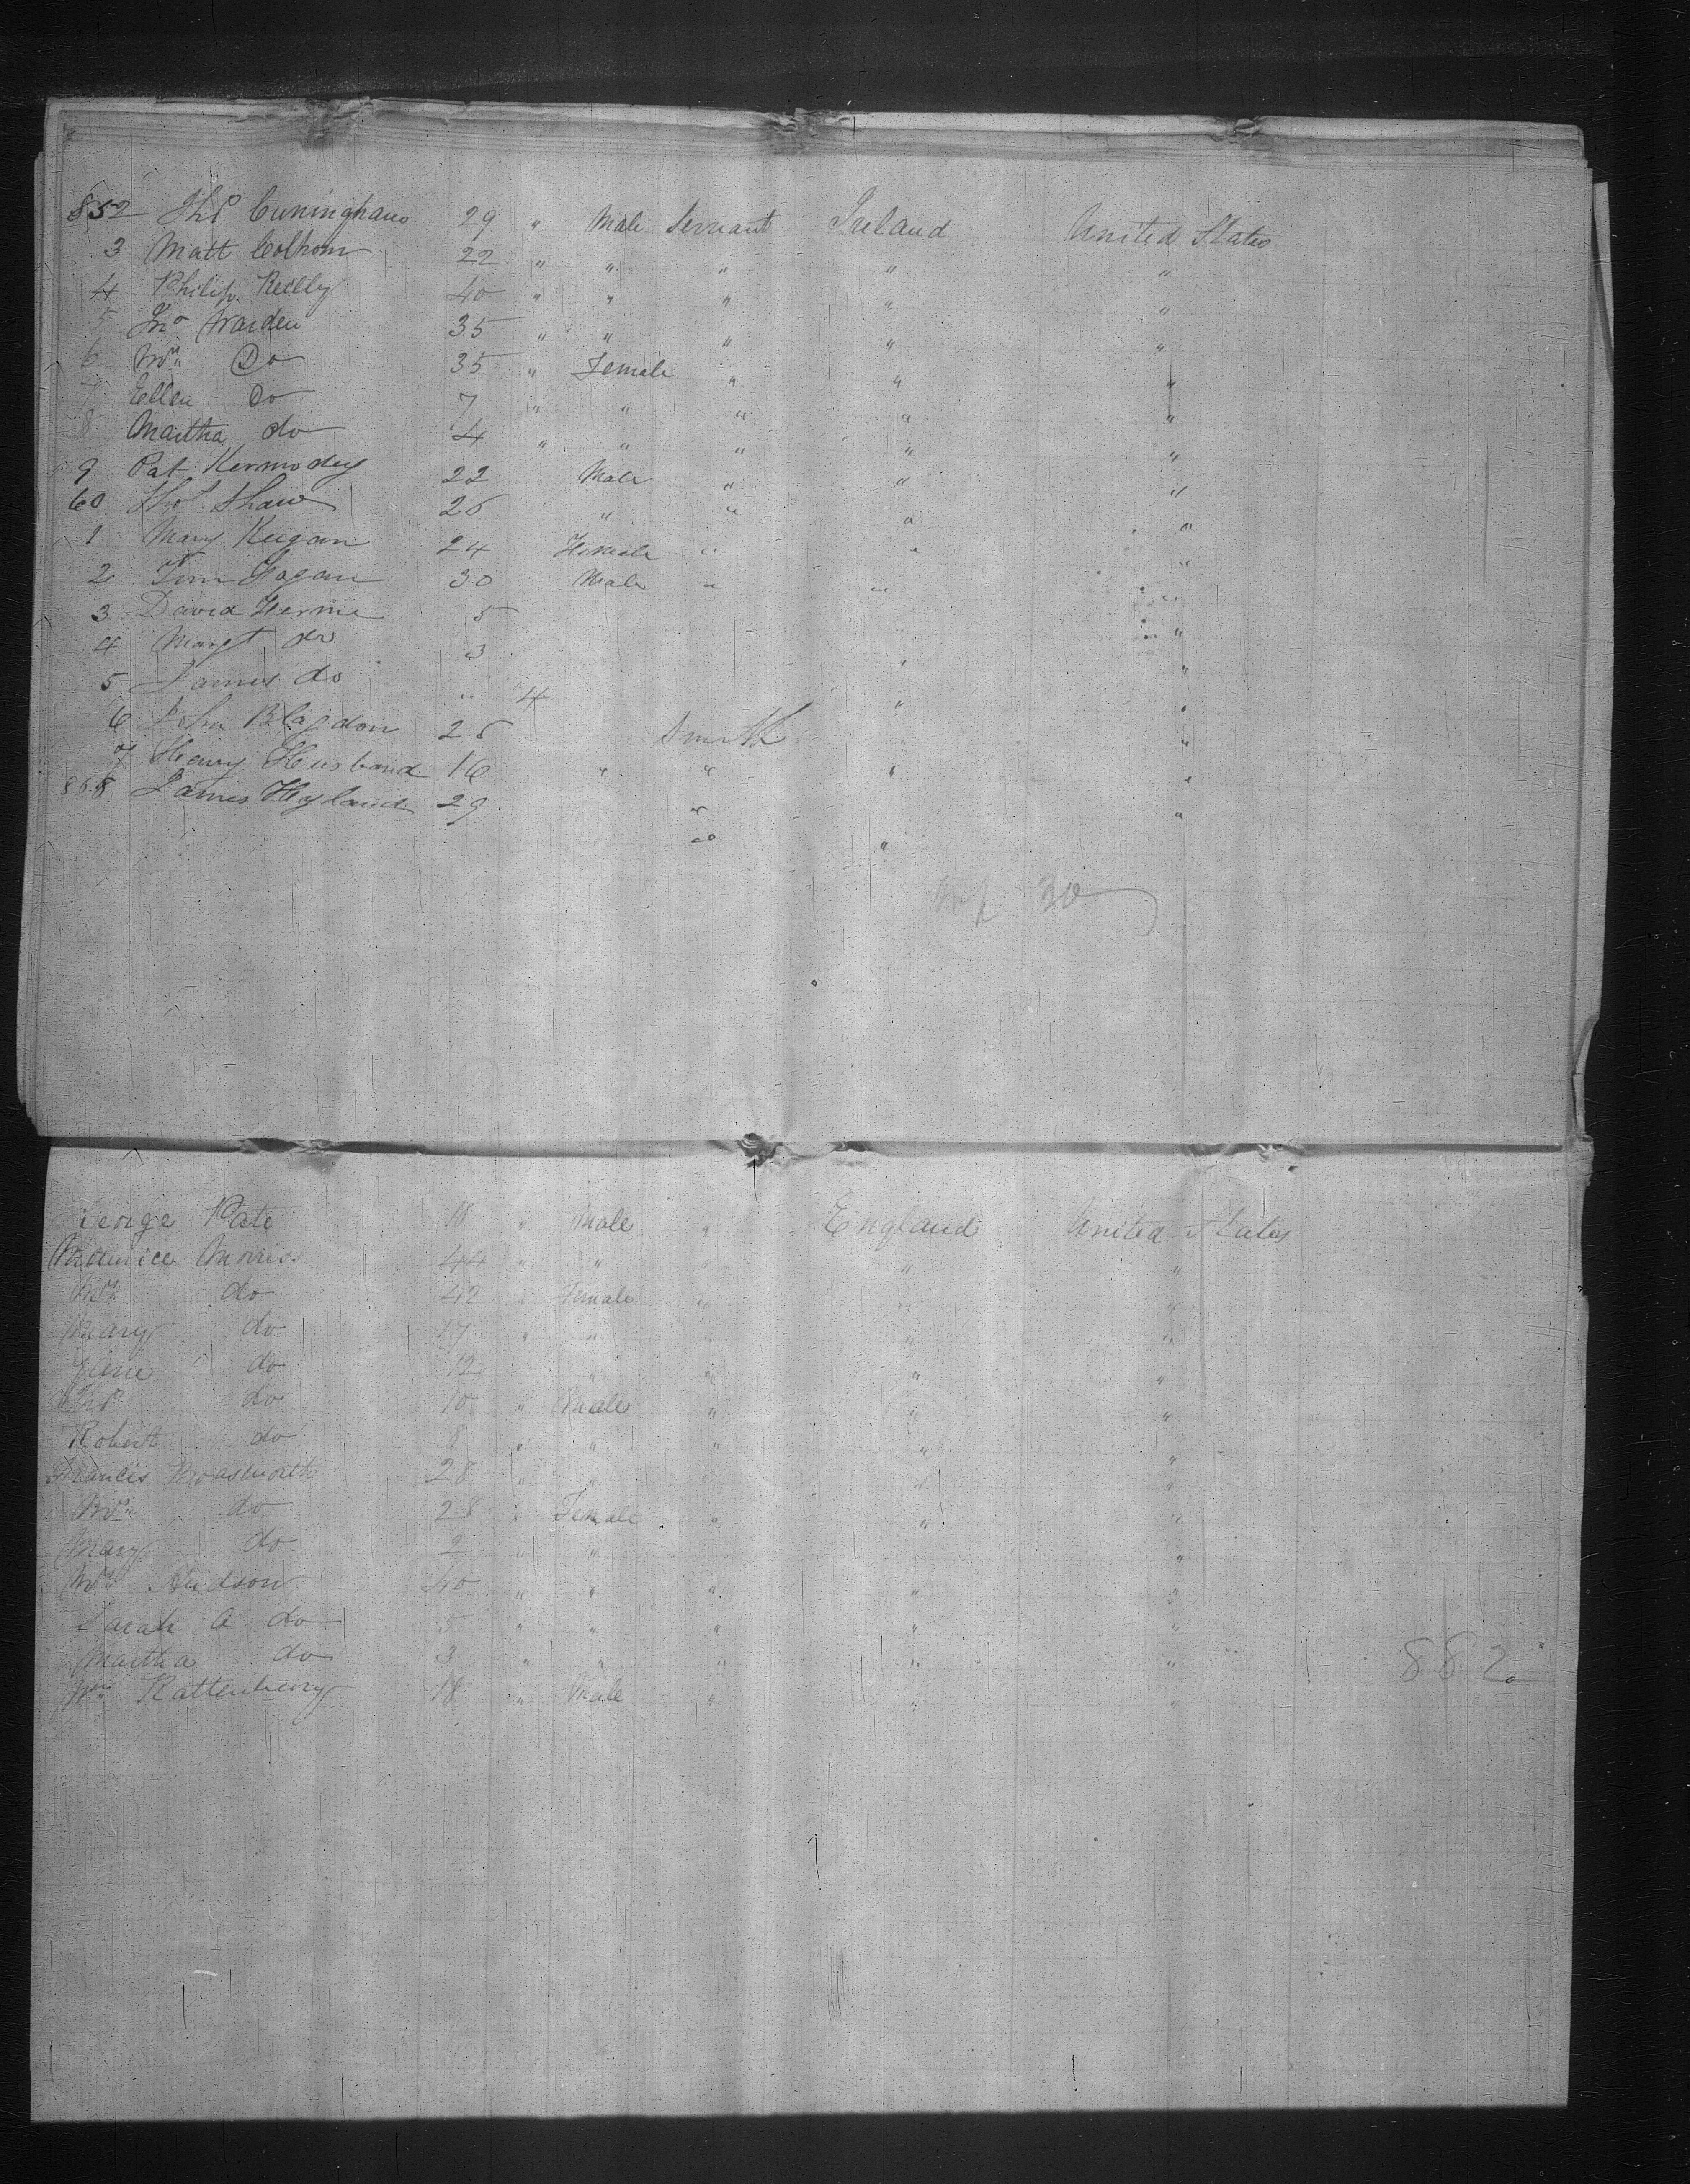 852 Thos Cuningham 29 " Male Servant Ireland United States
3 Matt Colhoun 22 " " " " "
4 Philip Reilly 40 " " " " "
5 Jno Warden 35 " " " " "
6 Mrs Do 35 " Female " " "
7 Ellen Do 7 " " " " "
8 Martha do 4 " " " " "
9 Pat Kermodey 22 Male " " "
60 Thos Shaw 26 " " " "
1 Mary Keigan 24 Female " " "
2 Tim Fagan 30 Male " " "
3 David 5 " "
4 Margt do 3 " "
5 James do " 4 " "
6 John Blagdon 26 Smith "
7 Henry Husband 16 " " " "
868 James Hyland 29 " "
" "
30
George Pate 18 " Male " England United States
Maurice Morris 44 " " " " "
Mrs do 42 " Female " " "
Mary do 17 " " " " "
Jane do 12 " " " "
Thos do 10 " Male " " "
Robert do 8 " " " " "
Francis Boasworth 28 " " " " "
Mrs do 28 " Female " " "
Mary do 2 " " "
Mrs Hudson 40 " " " " "
Sarah A do 5 " " " " "
Martha do 3 " " " " "
882
Wm Rattenbury 18 " Male " " "